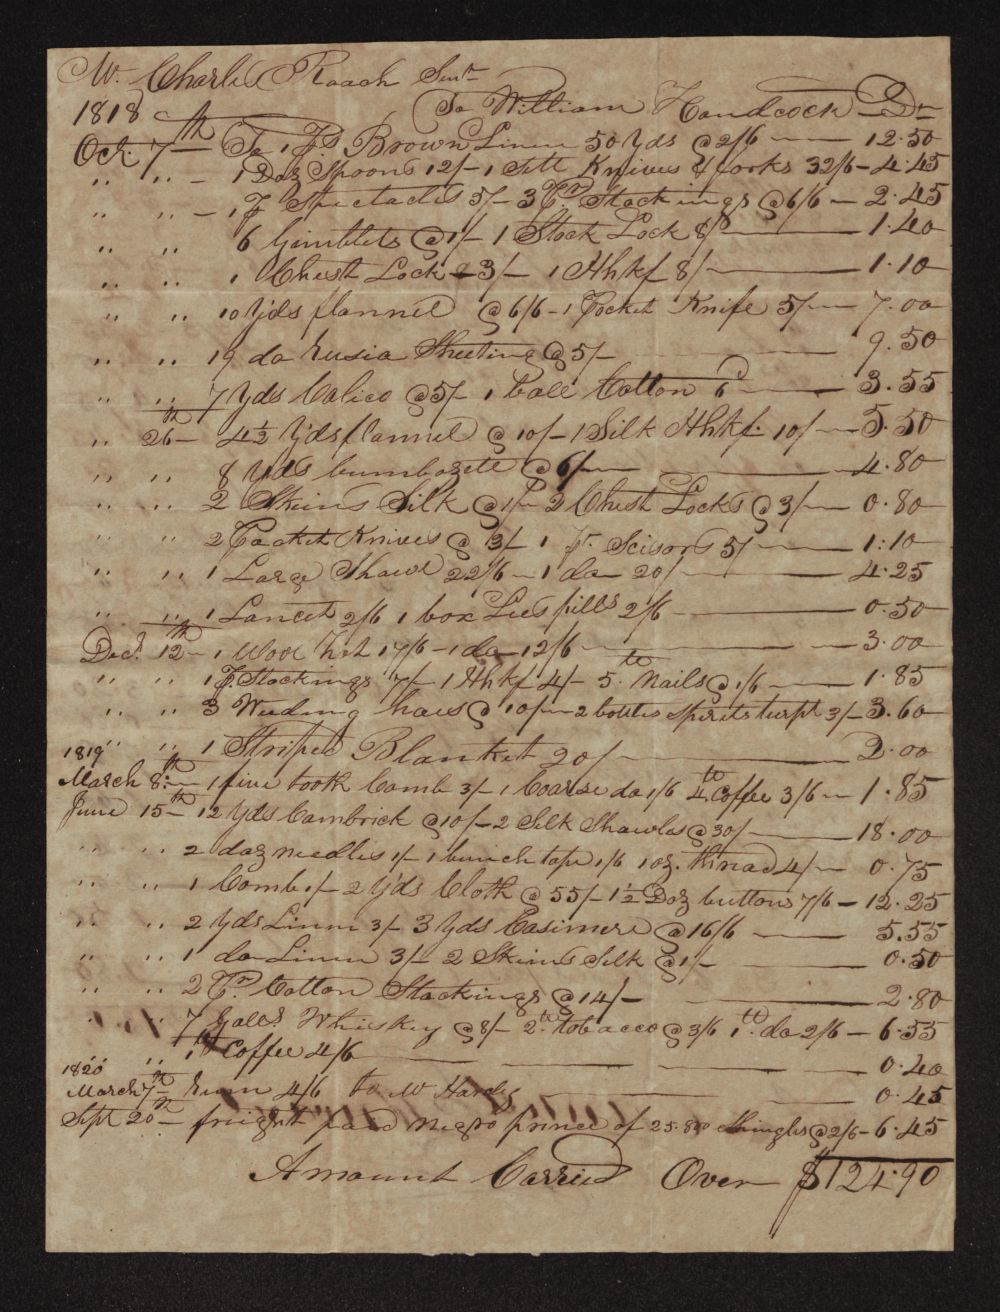 Mr. Charles Roach Senr
1818 To William Handcock Dr
Oct. 7th To 1 Ps Brown Linnn 50 Yds @ 2/6 — 12.50
" " — 1 Doz Spoons 12/– 1 Sett Knives & forks 32/6 – 4.45
" " — 1 Pr Spectacles 5/– 3 Pr Stockings @ 6/6 — 2.45
" " 6 Gimblets @ 1/– 1 Stock Lock 8/ — 1.40
" " 1 Chest Lock – 3/– 1 Hhkf 8/ — 1.10
" " 10 Yds flannel @ 6/6 – 1 Pocket Knife 5/ — 7.00
" " 19 do Rusia Sheeting @ 5/– — 9.50
" " 7 Yds Calico @ 5/– 1 Ball Cotton 6d — 3.55
" 26th – 4½ Yds flannel @ 10/– 1 Silk Hhkf. 10/ — 5.50
" " 8 Yds bumbazete @ 6/ — 4.80
" " 2 Skins Silk @ 1/– 2 Chest Locks @ 3/ — 0.80
" " 2 Pocket Knives @ 3/– 1 Pr. Scisors 5/ — 1.10
" " 1 Large Shawl 22/6 – 1 do 20/ — 4.25
" " 1 Lancet 2/6 1 box Lees pills 2/6 — 0.50
Decr. 12th – 1 Wool hat 17/6 – 1 do 12/6 — 3.00
" " 1 Pr. Stockings 7/– 1 Hhkf 4/– 5 lb Nails @ 1/6 — 1.85
" " 3 Weeding hows @ 10/– 2 bottles spirits turpt 3/– 3.60
1819 " " 1 Striped Blanket 20/ — 2.00
March 8th – 1 fine tooth Comb 3/– 1 Coarse do 1/6 lb Coffee 3/6 — 1.85
June 15th – 12 Yds Cambrick @ 10/– 2 Silk Shawlas @ 30/ — 18.00
" " 2 doz needles 1/– 1 bunch tape 1/6 1 oz. thread 4/ — 0.75
" " 1 Comb 1/– 2 Yds Cloth @ 55/– 1½ Doz buttons 7/6 – 12.25
" " 2 Yds Linnn 3/– 3 Yds Casimere @ 16/6 — 5.55
" " 1 do Linnn 3/– 2 Skins Silk @ 1/– — 0.50
" " 2 Pr. Cotton Stockings @ 14/– — 2.80
" " 7 Galls. Whiskey @ 8/– 2 lb tobacco @ 3/6 1 lb. do 2/6 – 6.55
" 1 lb Coffee 4/6 — 0.40
1820
March 7th – rum 4/6 to W Hardy — 0.45
Sept 20th – freight paid negro prince of 25.800 Shingles @ 2/6 – 6.45
Amount Carried Over $124.90